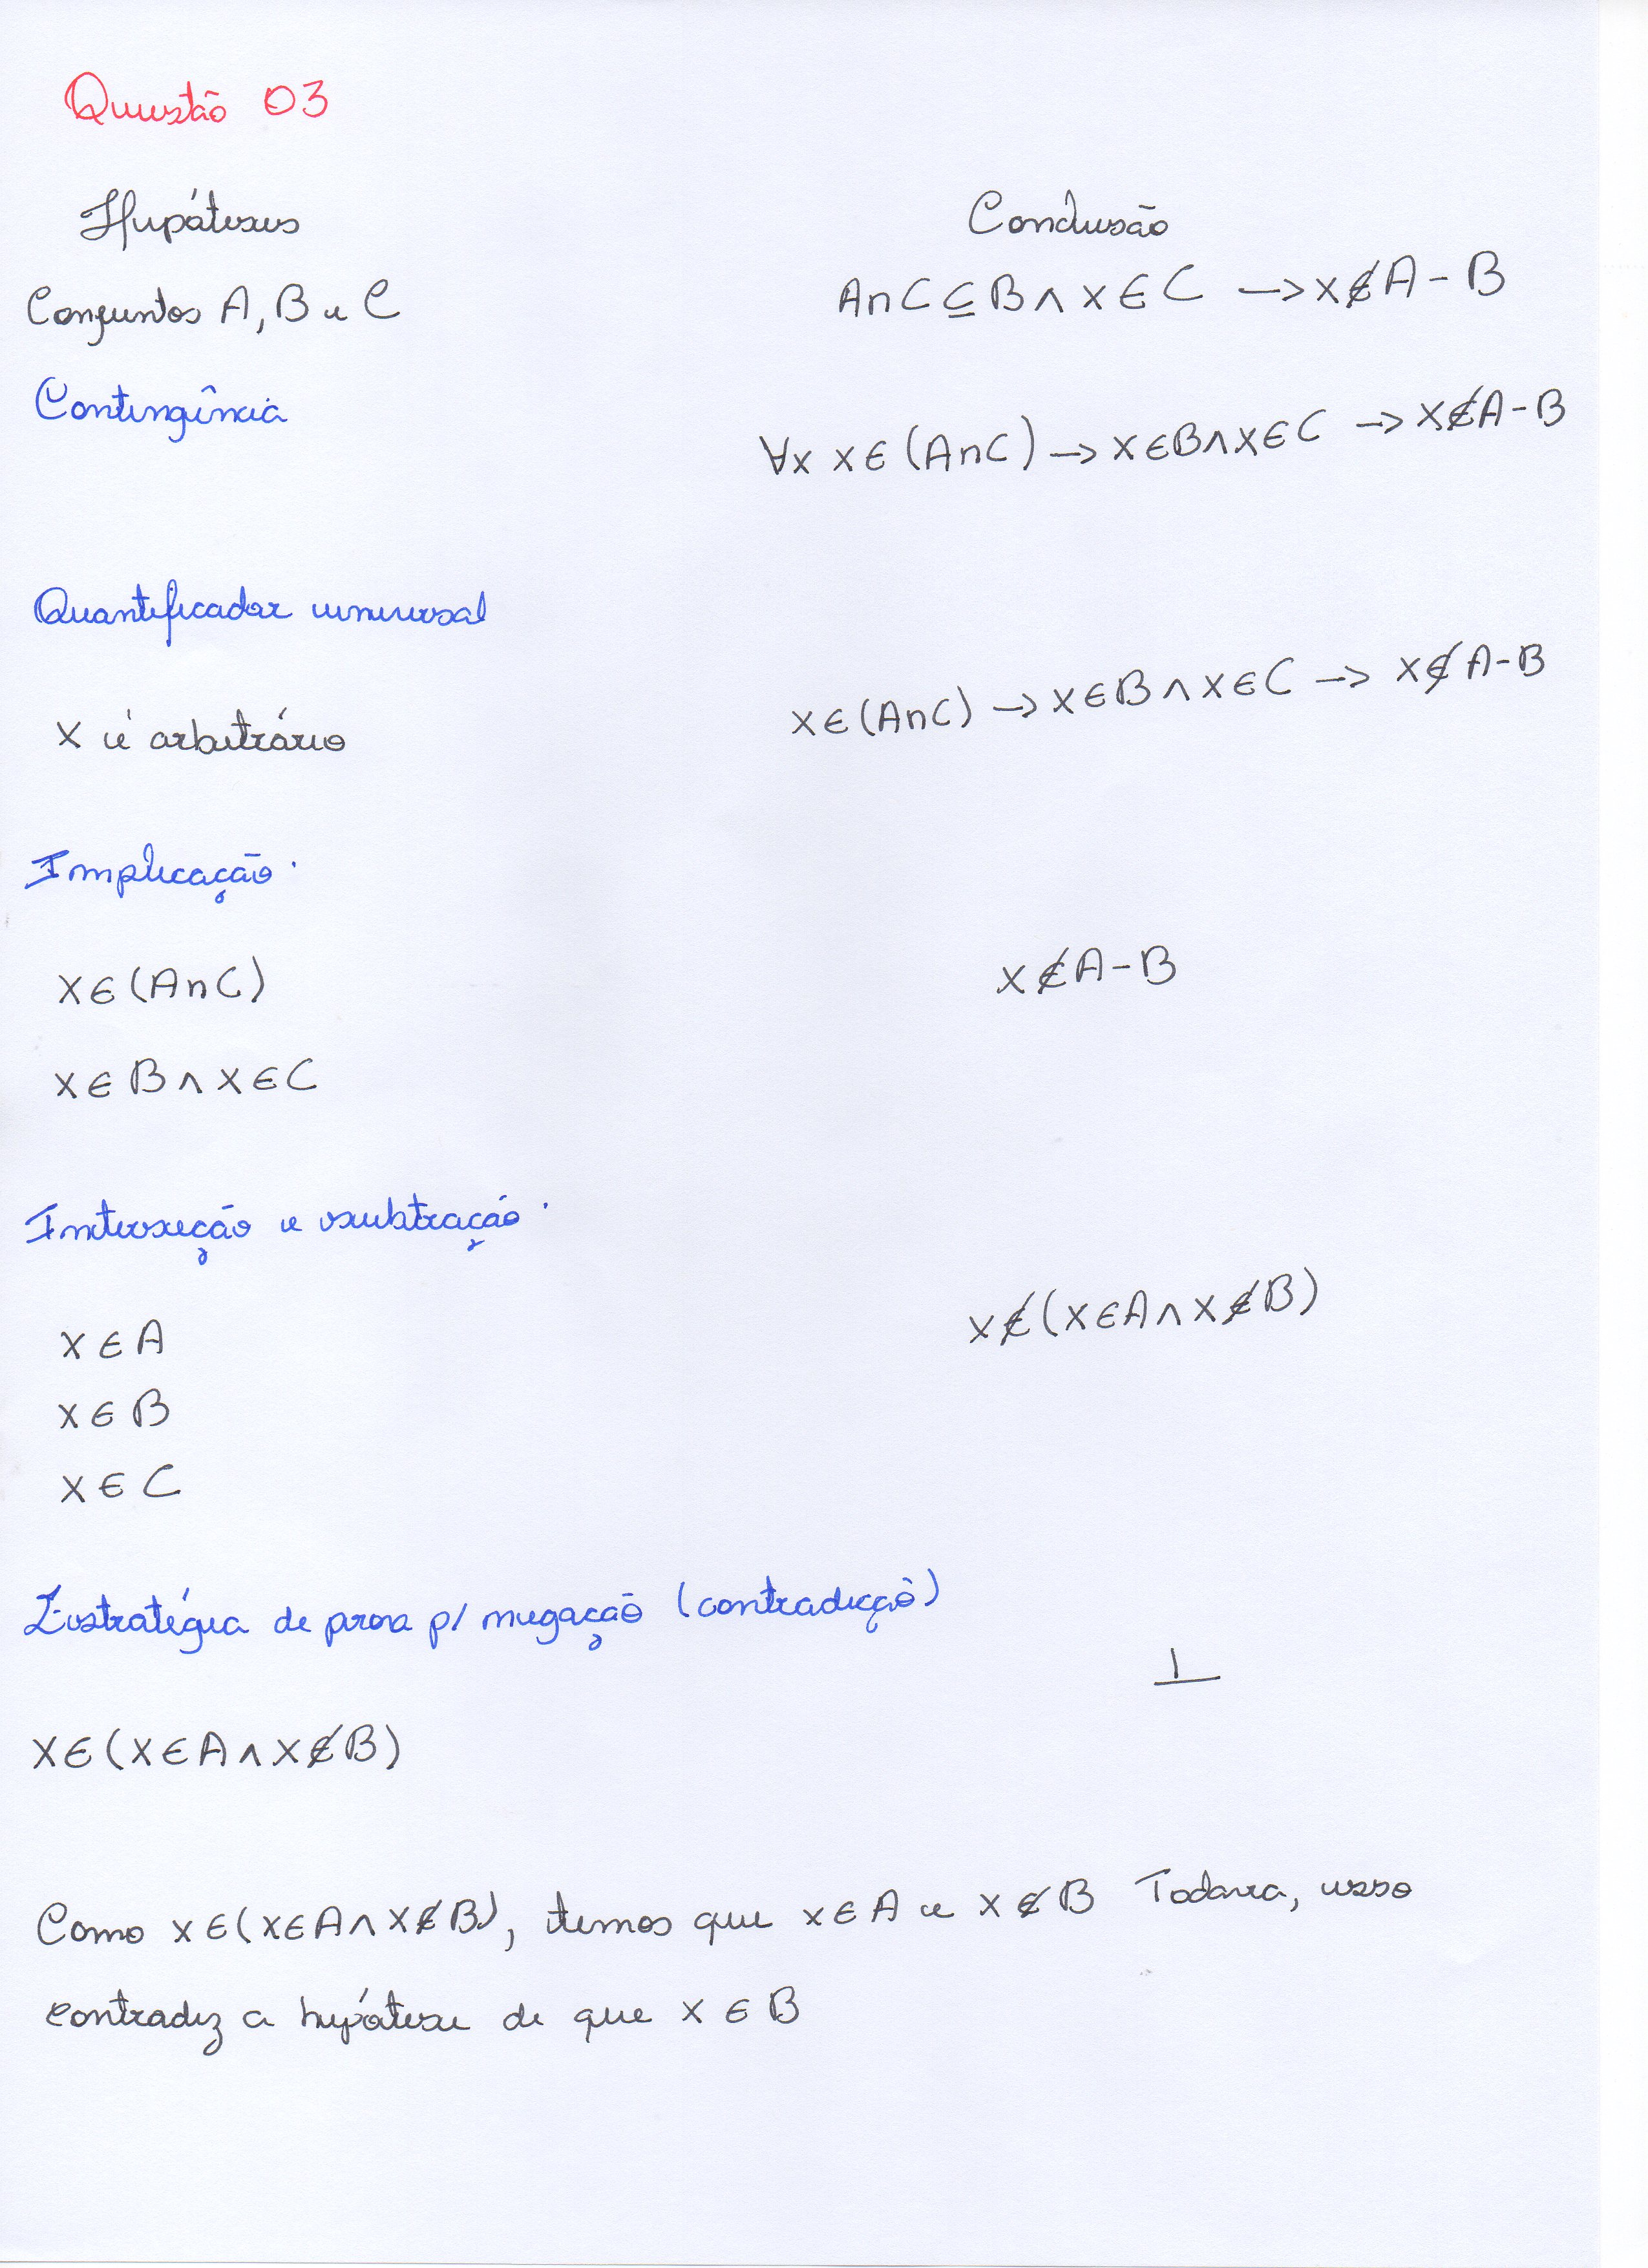 Questão 03
Hipóteses Conclusão
Conjuntos A, B e C A∩C⊆B∧x∈C →x∉A-B
Contingência
∀x x∈(A∩C)→x∈B∧x∈C →x∉A-B
Quantificador universal
x é arbitrário x∈(A∩C)→x∈B∧x∈C→ x∉A-B
Implicação
x∈(A∩C) x∉A-B
x∈B∧x∈C
Interseção e subtração
x∈A x∉(x∈A∧x∉B)
x∈B
x∈C
Estratégia de prova p/ negação (contradição)
⊥
x∈(x∈A∧x∉B)
Como x∈(x∈A∧x∉B), temos que x∈A e x∉B Todavia, isso
contradiz a hipótese de que x∈B